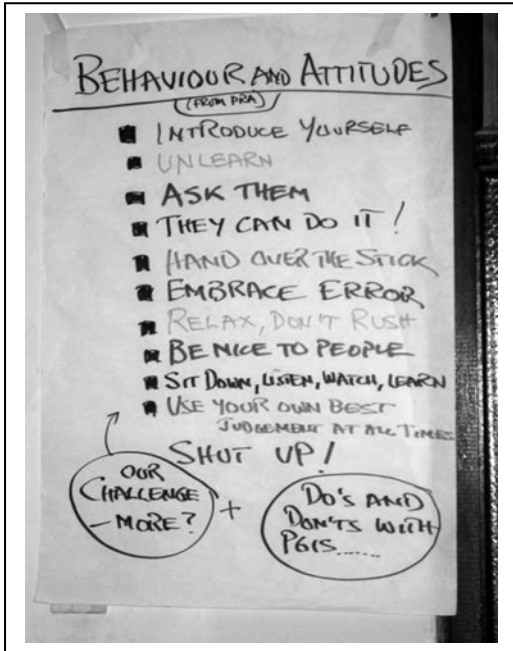 BEHAVIOUR AND ATTITUDES
(FROM PRA)
INTRODUCE YOURSELF
UNLEARN
ASK THEM
THEY CAN DO IT!
HAND OVER THE STICK
EMBRACE ERROR
RELAX, DON'T RUSH
BE NICE TO PEOPLE
SIT DOWN, LISTEN, WATCH, LEARN
USE YOUR OWN BEST
JUDGEMENT AT ALL TIMES
SHUT UP!
OUR
CHALLENGE
- MORE?
+
DO'S AND
DON'TS WITH
PGIS.......